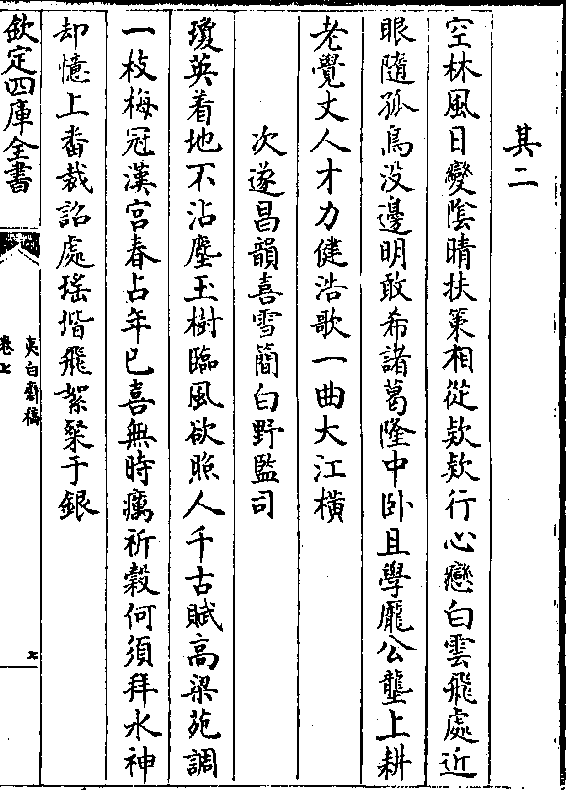 其二
空林風日變陰晴扶策相從欵欵行心戀白雲飛處近
眼隨孤鳥没邊明敢希諸葛隆中卧且學龐公壟上耕
老覺丈人才力健浩歌一曲大江橫
次遂昌韻喜雪簡白野監司
瓊英着地不沾塵玉樹臨風欲照人千古賦高梁苑調
一枝梅冠漢宮春占年已喜無時癘祈穀何須拜水神
却憶上番裁詔處瑤堦飛絮粲于銀
欽定四庫全書
夷白齋稿
卷七
七